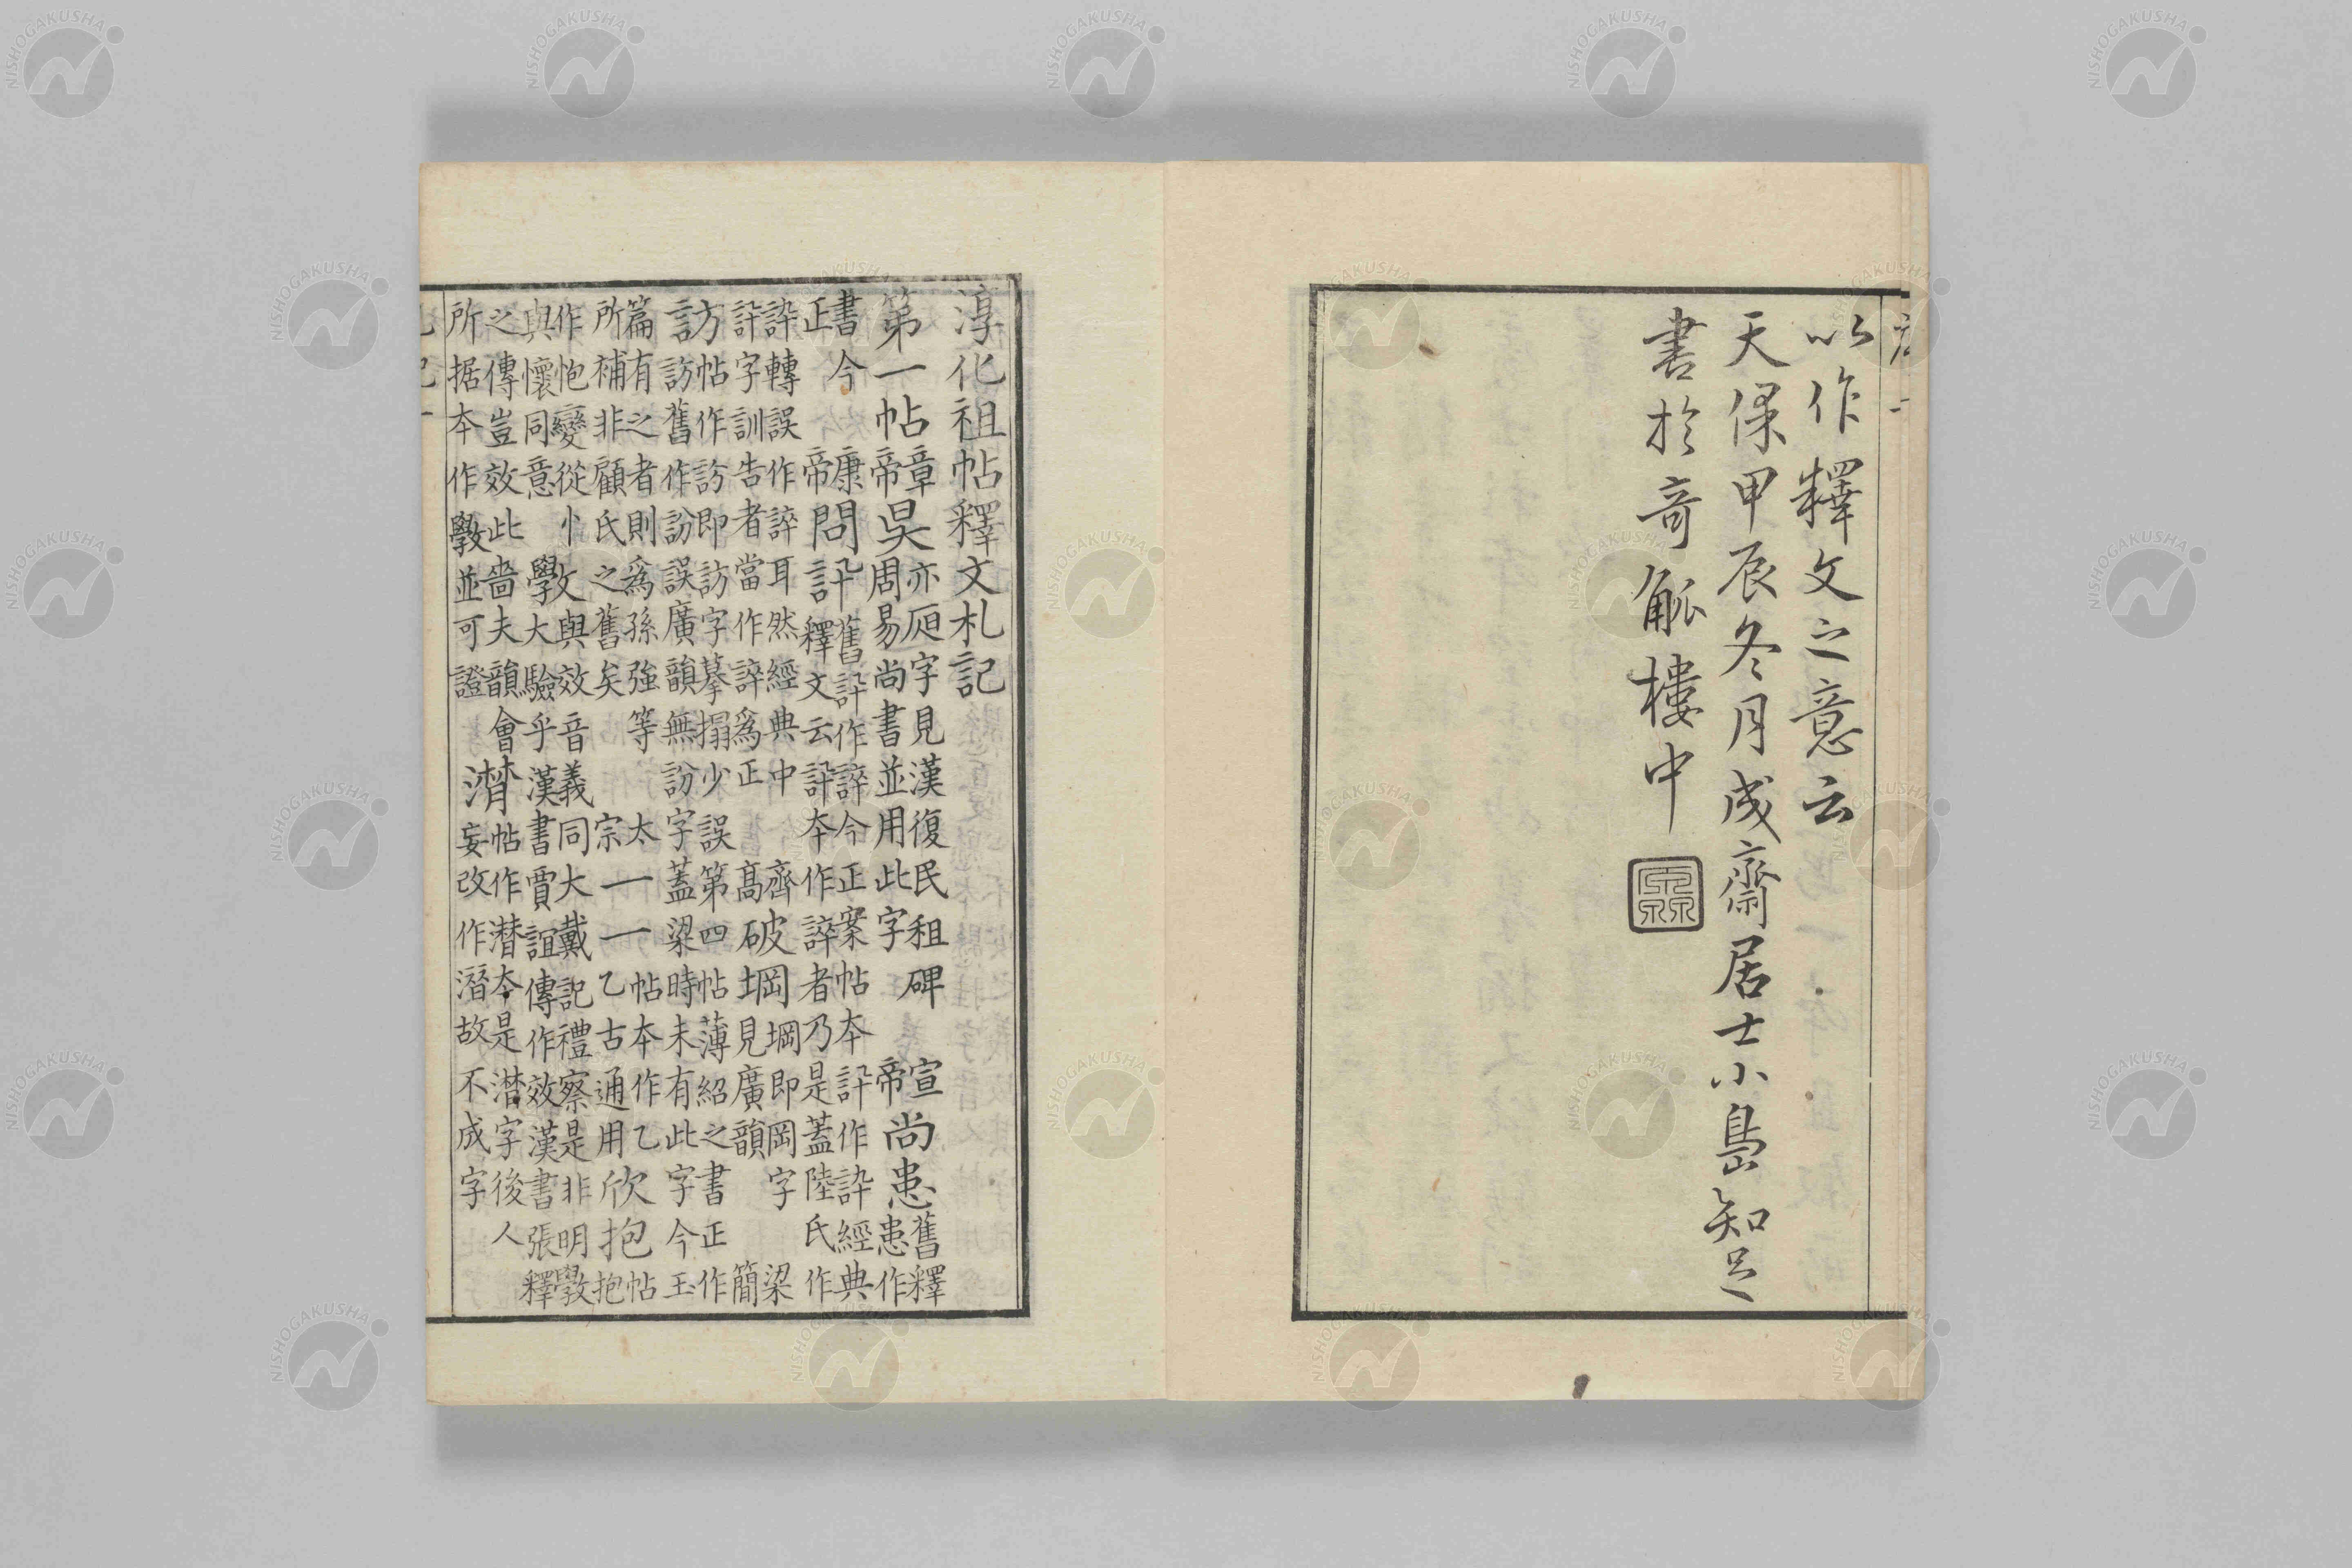 以作釋文之意云
天保甲辰冬月成齋居士小島知足
書於奇觚樓中
淳化祖帖釋文札記
第一帖
章帝
昊
字見漢復民租碑
周易尚書並用此字
宣帝
尚患
舊釋
患作
書今
正
康帝
問訊
舊訊作誶今正案帖本訊作經典
釋文云訊本作誶者乃是蓋陸氏作
轉誤作誶耳然經典中
訊字訓告者當作誶爲正
齊高
破堈
堈即岡字
見廣韻
梁簡
訪
帖作訪即訪字摹搨少誤第四帖薄紹之書正作
訪舊作訜誤廣韻無訜字蓋梁時未有此字今玉
篇有之者則爲孫強等
所補非顧氏之舊矣
太宗
一一
帖本作乙
乙古通用
欣抱
帖
抱
作怉變從忄
與懷同意
斆
與效音義同大戴記禮察是非明斆
大驗乎漢書賈誼傳作效漢書張釋
之傳豈效此嗇夫韻會
所据本作斆並可證
帖作潜本是潜字後人
妄改作故不成字